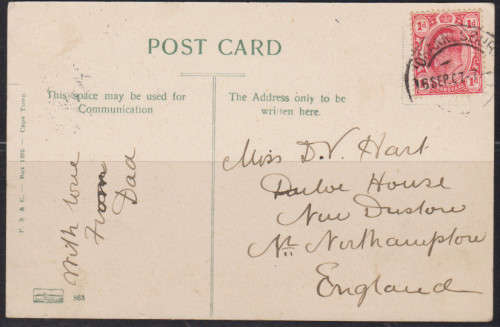 POST CARD
This space may be used for
Communication
The Address only to be
written here.
1d 1d
16 SEP. 07
With love
From
Dad
Miss D. V. Hart
House
New Duston
Nr. Northampton
England
P. S & C. — Cape Town.
563